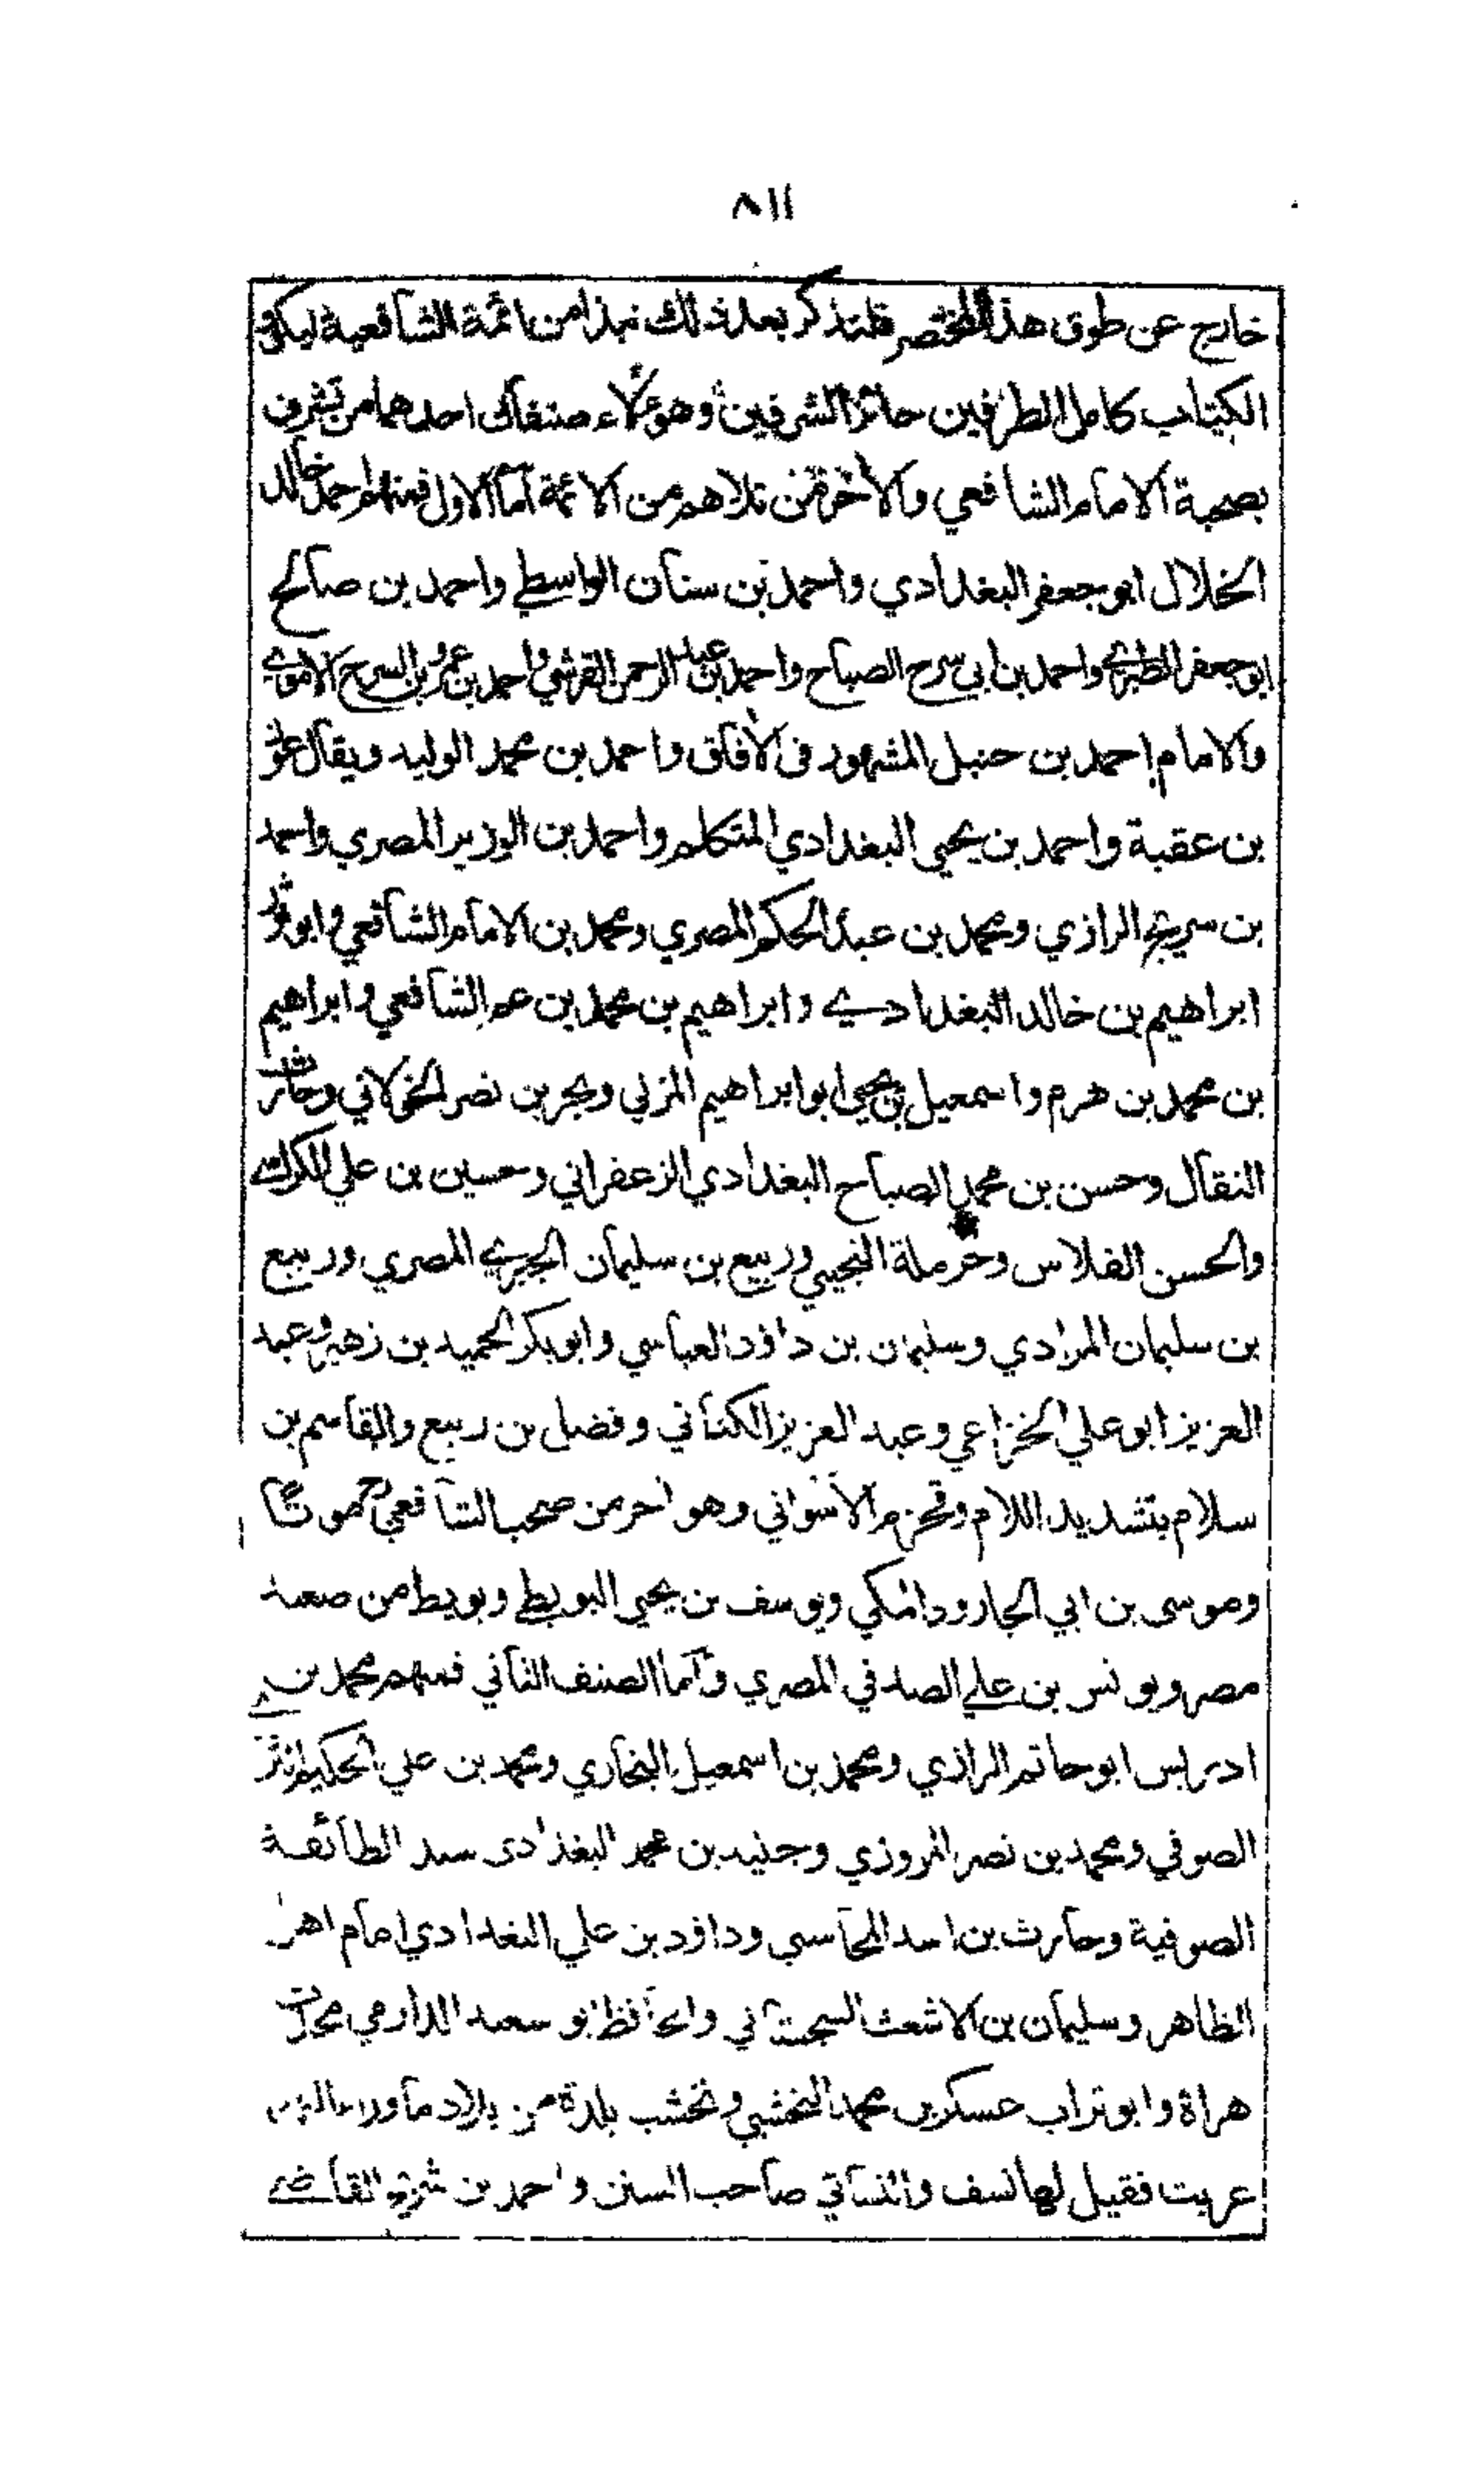 ٨١١
خارج عن طوق هذا المختصر فلنذكر بعد ذلك نبذا من ائمة الشافعية ليكون
الكتاب كامل الطرفين حائز الشرفين وهؤلاء صنفان احدهما من تشرف
بصحبة الامام الشافعي والأخر من تلاهم من الائمة اما الاول فمنهم احمد خالد
الخلال ابو جعفر البغدادي واحمد بن سنان الواسطي واحمد بن صالح
ابو جعفر الطبري واحمد بن ابي سرح الصباح واحمد بن عبد الرحمن القرشي واحمد بن عمرو بن السرح الاموي
والامام احمد بن حنبل المشهور فى الأفاق واحمد بن محمد الوليد ويقال عون
بن عقبة واحمد بن يحيى البغدادي المتكلم واحمد بن الوزير المصري واحمد
بن سريج الرازي ومحمد بن عبد الحكم المصري ومحمد بن الامام الشافعي وابو ثور
ابراهيم بن خالد البغدادي وابراهيم بن محمد بن عم الشافعي وابراهيم
بن محمد بن هرم واسمعيل بن يحيى ابو ابراهيم المزني وبحر بن نصر الخولاني وحارث
النقال وحسن بن محمد الصباح البغدادي الزعفراني وحسين بن علي
والحسن الفلاس وحرملة التجيبي وربيع بن سليمان الجيزي المصري وربيع
بن سليمان المرادي وسليمان بن داؤد العباسي وابو بكر الحميد بن زهير وعبد
العزيز ابو علي الخزاعي وعبد العزيز الكناني وفضل بن ربيع والقاسم بن
سلام بتشديد اللام وقحزم الأسواني وهو اخر من صحب الشافعي موتا
وموسى بن ابي الجارود المكي ويوسف بن يحيى البويطي وبويط من صعيد
مصر ويونس بن علي الصدفي المصري واما الصنف الثاني فمنهم محمد بن
ادريس ابو حاتم الرازي ومحمد بن اسمعيل البخاري ومحمد بن علي الحكيم الترمذي
الصوفي ومحمد بن نصر المروزي وجنيد بن محمد البغدادي سيد الطائفة
الصوفية وحارث بن اسد المحاسبي وداؤد بن علي البغدادي امام اهل
الظاهر وسليمان بن الاشعث السجستاني والحافظ ابو سعيد الدارمي محدث
هراة وابو تراب عسكر بن محمد النخشبي ونخشب بلدة من بلاد ما وراء النهر
عربت فقيل لها نسف والنسائي صاحب السنن واحمد بن شريح القاضي